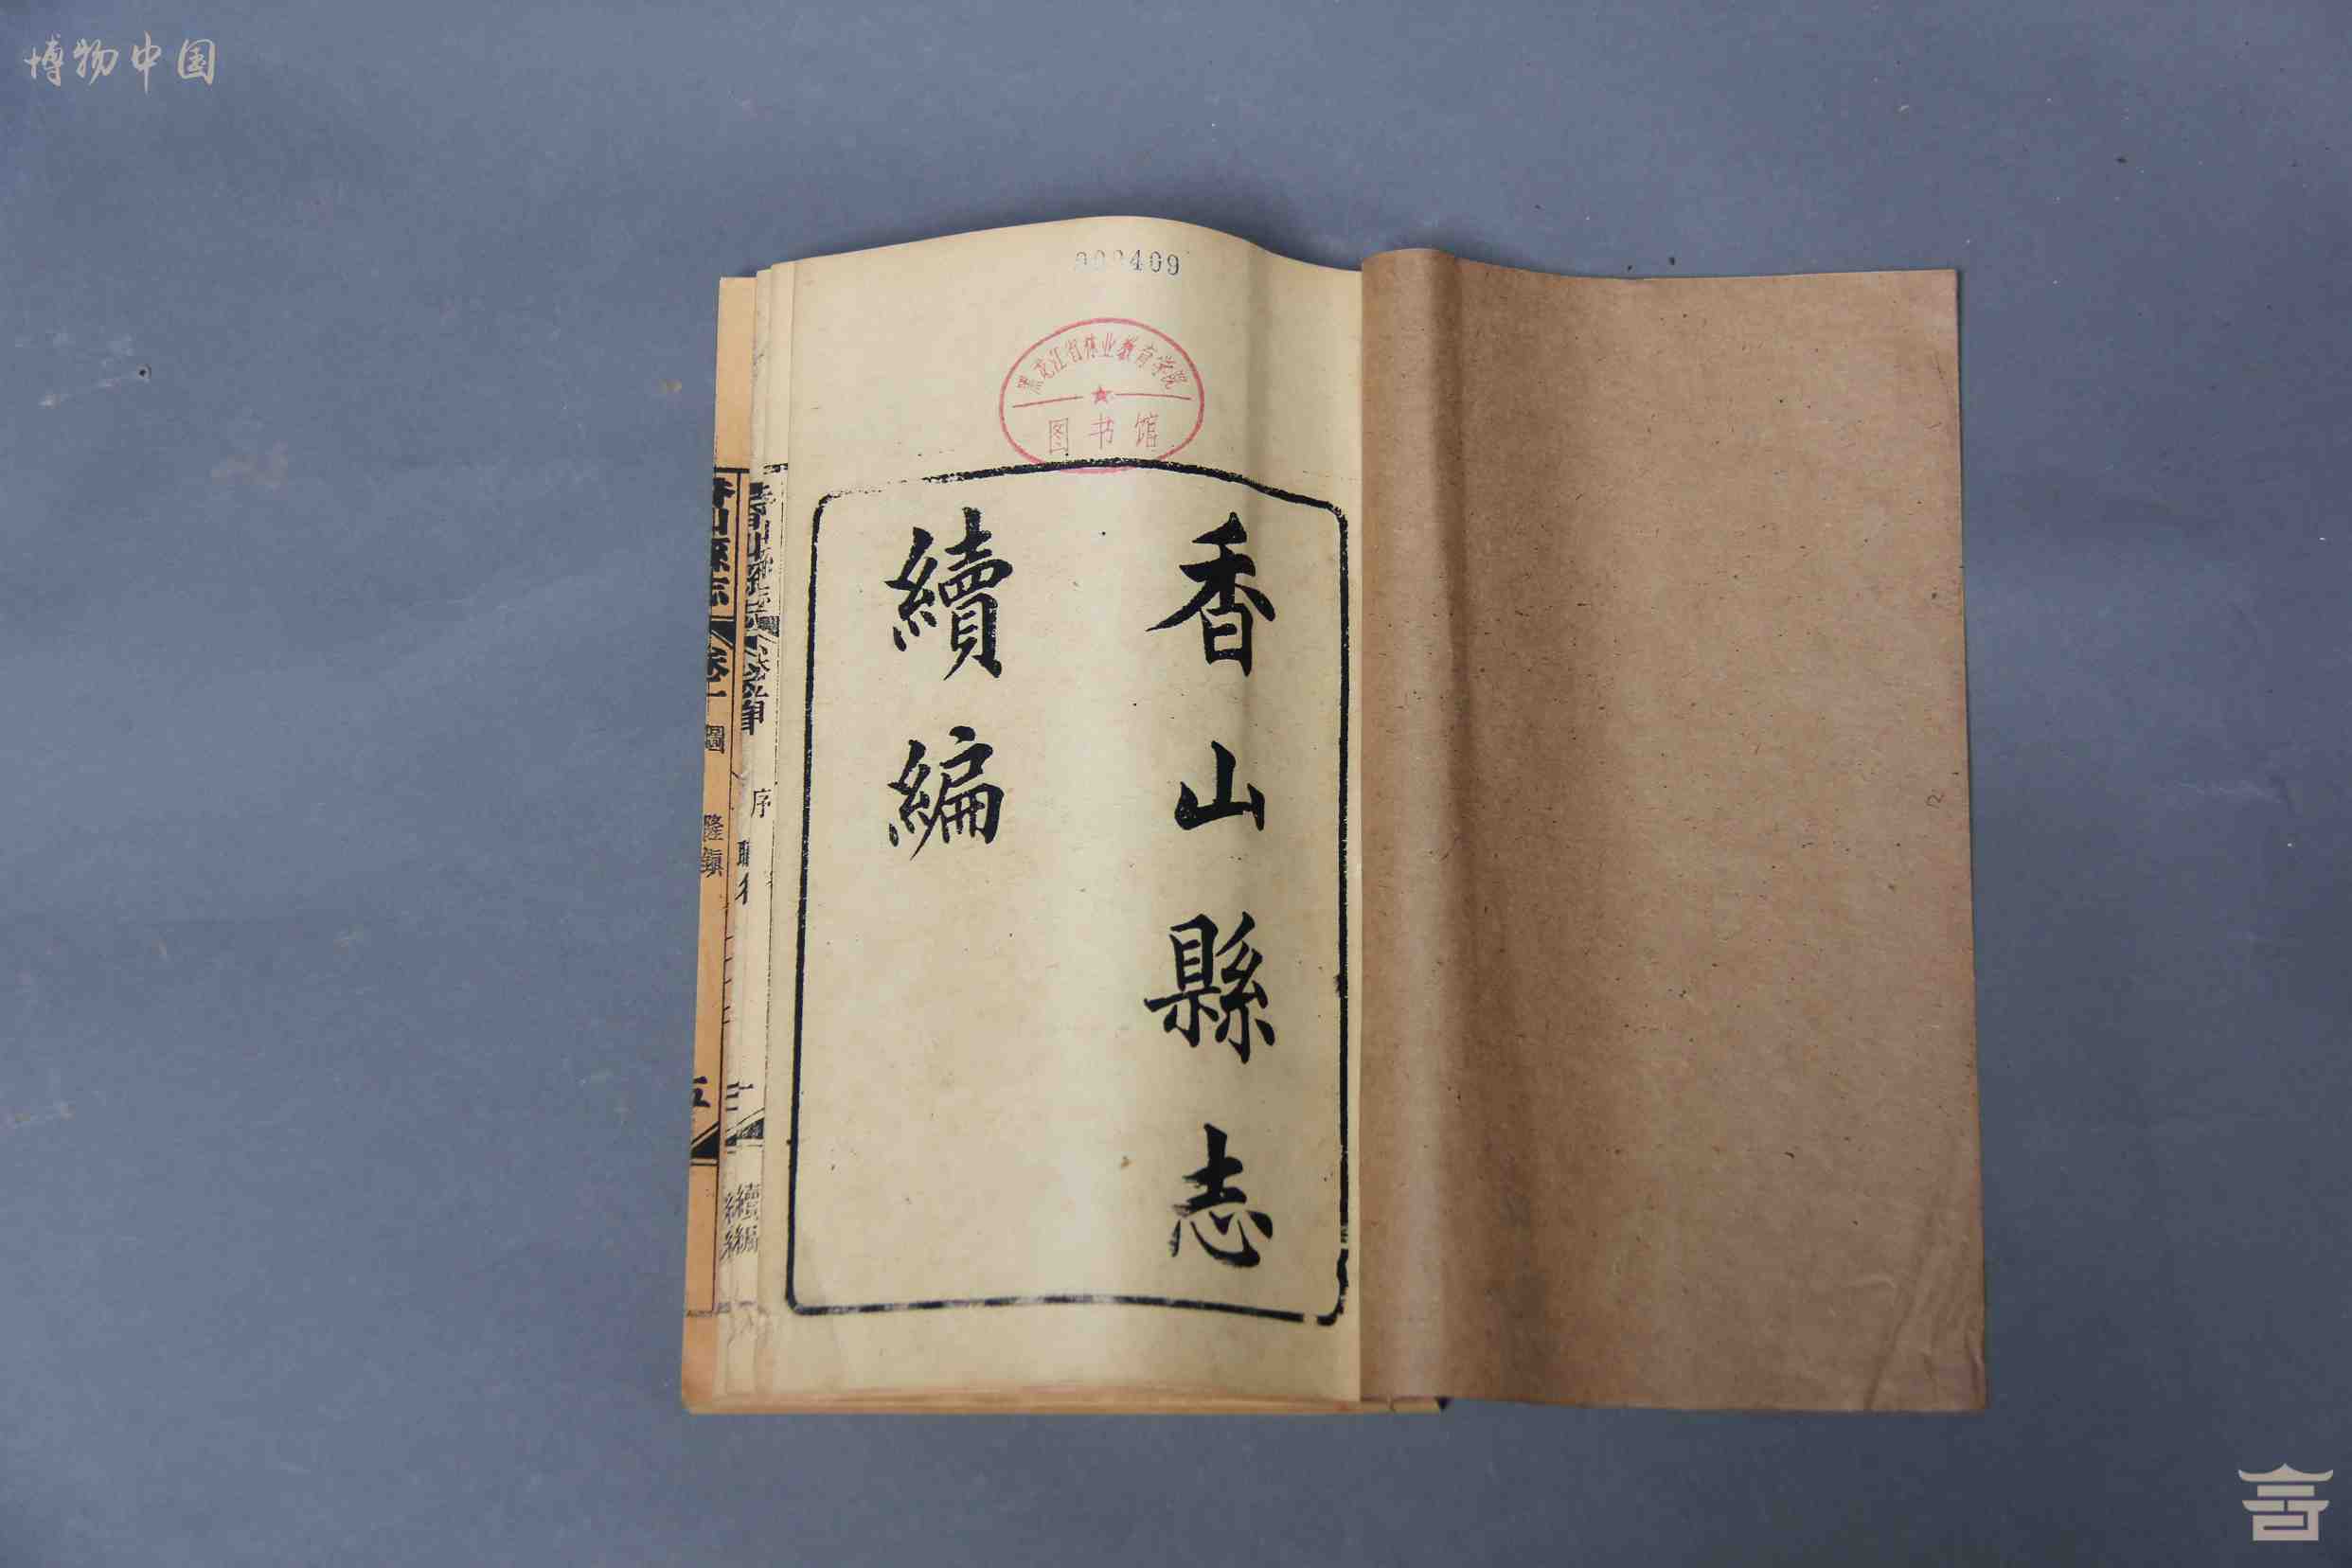 博物中国
409
黑龙江省伟业教育学院
图书馆
香山縣志
續編
香山縣志
卷首
序
職名
續編
香山縣志
卷一
圖
隆鎮
五